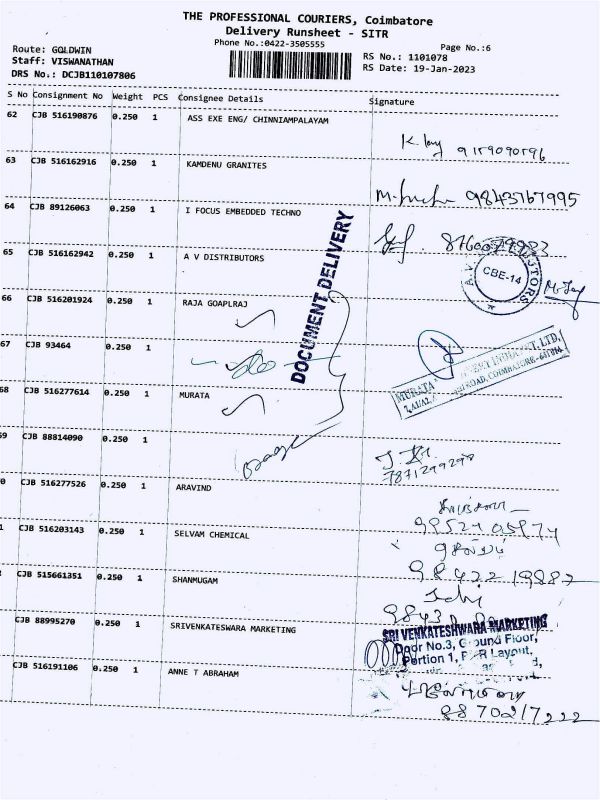 THE PROFESSIONAL COURIERS, Coimbatore
Delivery Runsheet - SITR
Phone No.:0422-3505555
Page No.:6
Route: GOLDWIN
RS No.: 1101078
Staff: VISWANATHAN
RS Date: 19-Jan-2023
DRS No.: DCJB110107806
S No Consignment No Weight PCS Consignee Details Signature
62 CJB 516190876 0.250 1 ASS EXE ENG/ CHINNIAMPALAYAM
9159090596
63 CJB 516162916 0.250 1 KAMDENU GRANITES
9843767995
64 CJB 89126063 0.250 1 I FOCUS EMBEDDED TECHNO
65 CJB 516162942 0.250 1 A V DISTRIBUTORS
CBE-14
66 CJB 516201924 0.250 1 RAJA GOAPLRAJ
DOCUMENT DELIVERY
67 CJB 93464 0.250 1
68 CJB 516277614 0.250 1 MURATA
MURATA
9 CJB 88814090 0.250 1
7871299298
0 CJB 516277526 0.250 1 ARAVIND
1 CJB 516203143 0.250 1 SELVAM CHEMICAL
CJB 515661351 0.250 1 SHANMUGAM
98422 19887
9843
CJB 88995270 0.250 1 SRIVENKATESWARA MARKETING
SRI VENKATESHWARA MARKETING
Door No.3, Ground Floor,
Portion 1, Layout,
CJB 516191106 0.250 1 ANNE T ABRAHAM
8870217222